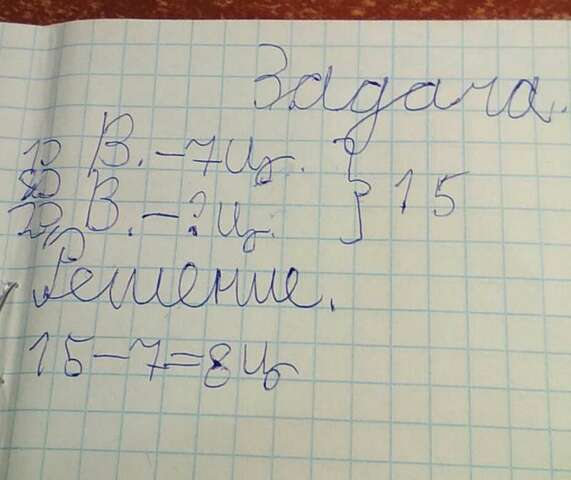 Задача.
1) В. – 7 ц.
2) В. – ? ц. } 15
Решение.
15 – 7 = 8 ц